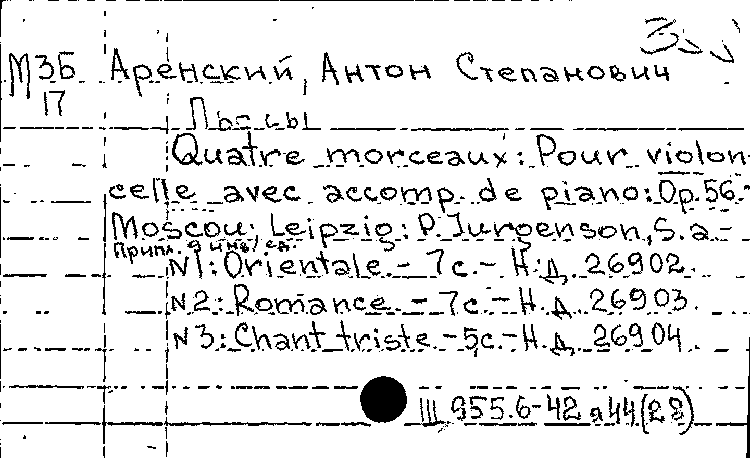 М3Б Аренский, Антон Степанович
17 Пьесы
Quatre morceaux: Pour violon-
celle avec accomp. de piano: Op. 56.-
Moscou; Leipzig: P. Jurgenson, S.a.-
N1: Orientale.- 7с.- Н.Д. 26902.
N2: Romance.- 7с.- Н.Д. 26903.
N3: Chant triste.-5с.-Н.Д. 26904.
Ш 955.6-42